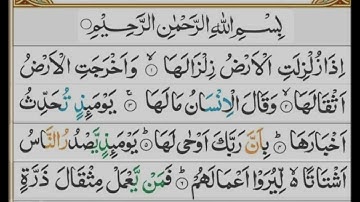 بِسْمِ اللهِ الرَّحْمٰنِ الرَّحِيْمِ
اِذَا زُلْزِلَتِ الْاَرْضُ زِلْزَالَهَا ۙ۱ وَاَخْرَجَتِ الْاَرْضُ
اَثْقَالَهَا ۙ۲ وَقَالَ الْاِنْسَانُ مَا لَهَا ۚ۳ يَوْمَئِذٍ تُحَدِّثُ
اَخْبَارَهَا ۙ۴ بِاَنَّ رَبَّكَ اَوْحٰى لَهَا ؕ۵ يَوْمَئِذٍ يَّصْدُرُ النَّاسُ
اَشْتَاتًا ۙ۬ لِّيُرَوْا اَعْمَالَهُمْ ؕ۶ فَمَنْ يَّعْمَلْ مِثْقَالَ ذَرَّةٍ